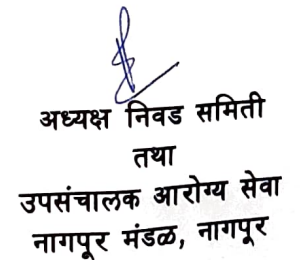 अध्यक्ष निवड समिती
तथा
उपसंचालक आरोग्य सेवा
नागपूर मंडळ, नागपूर